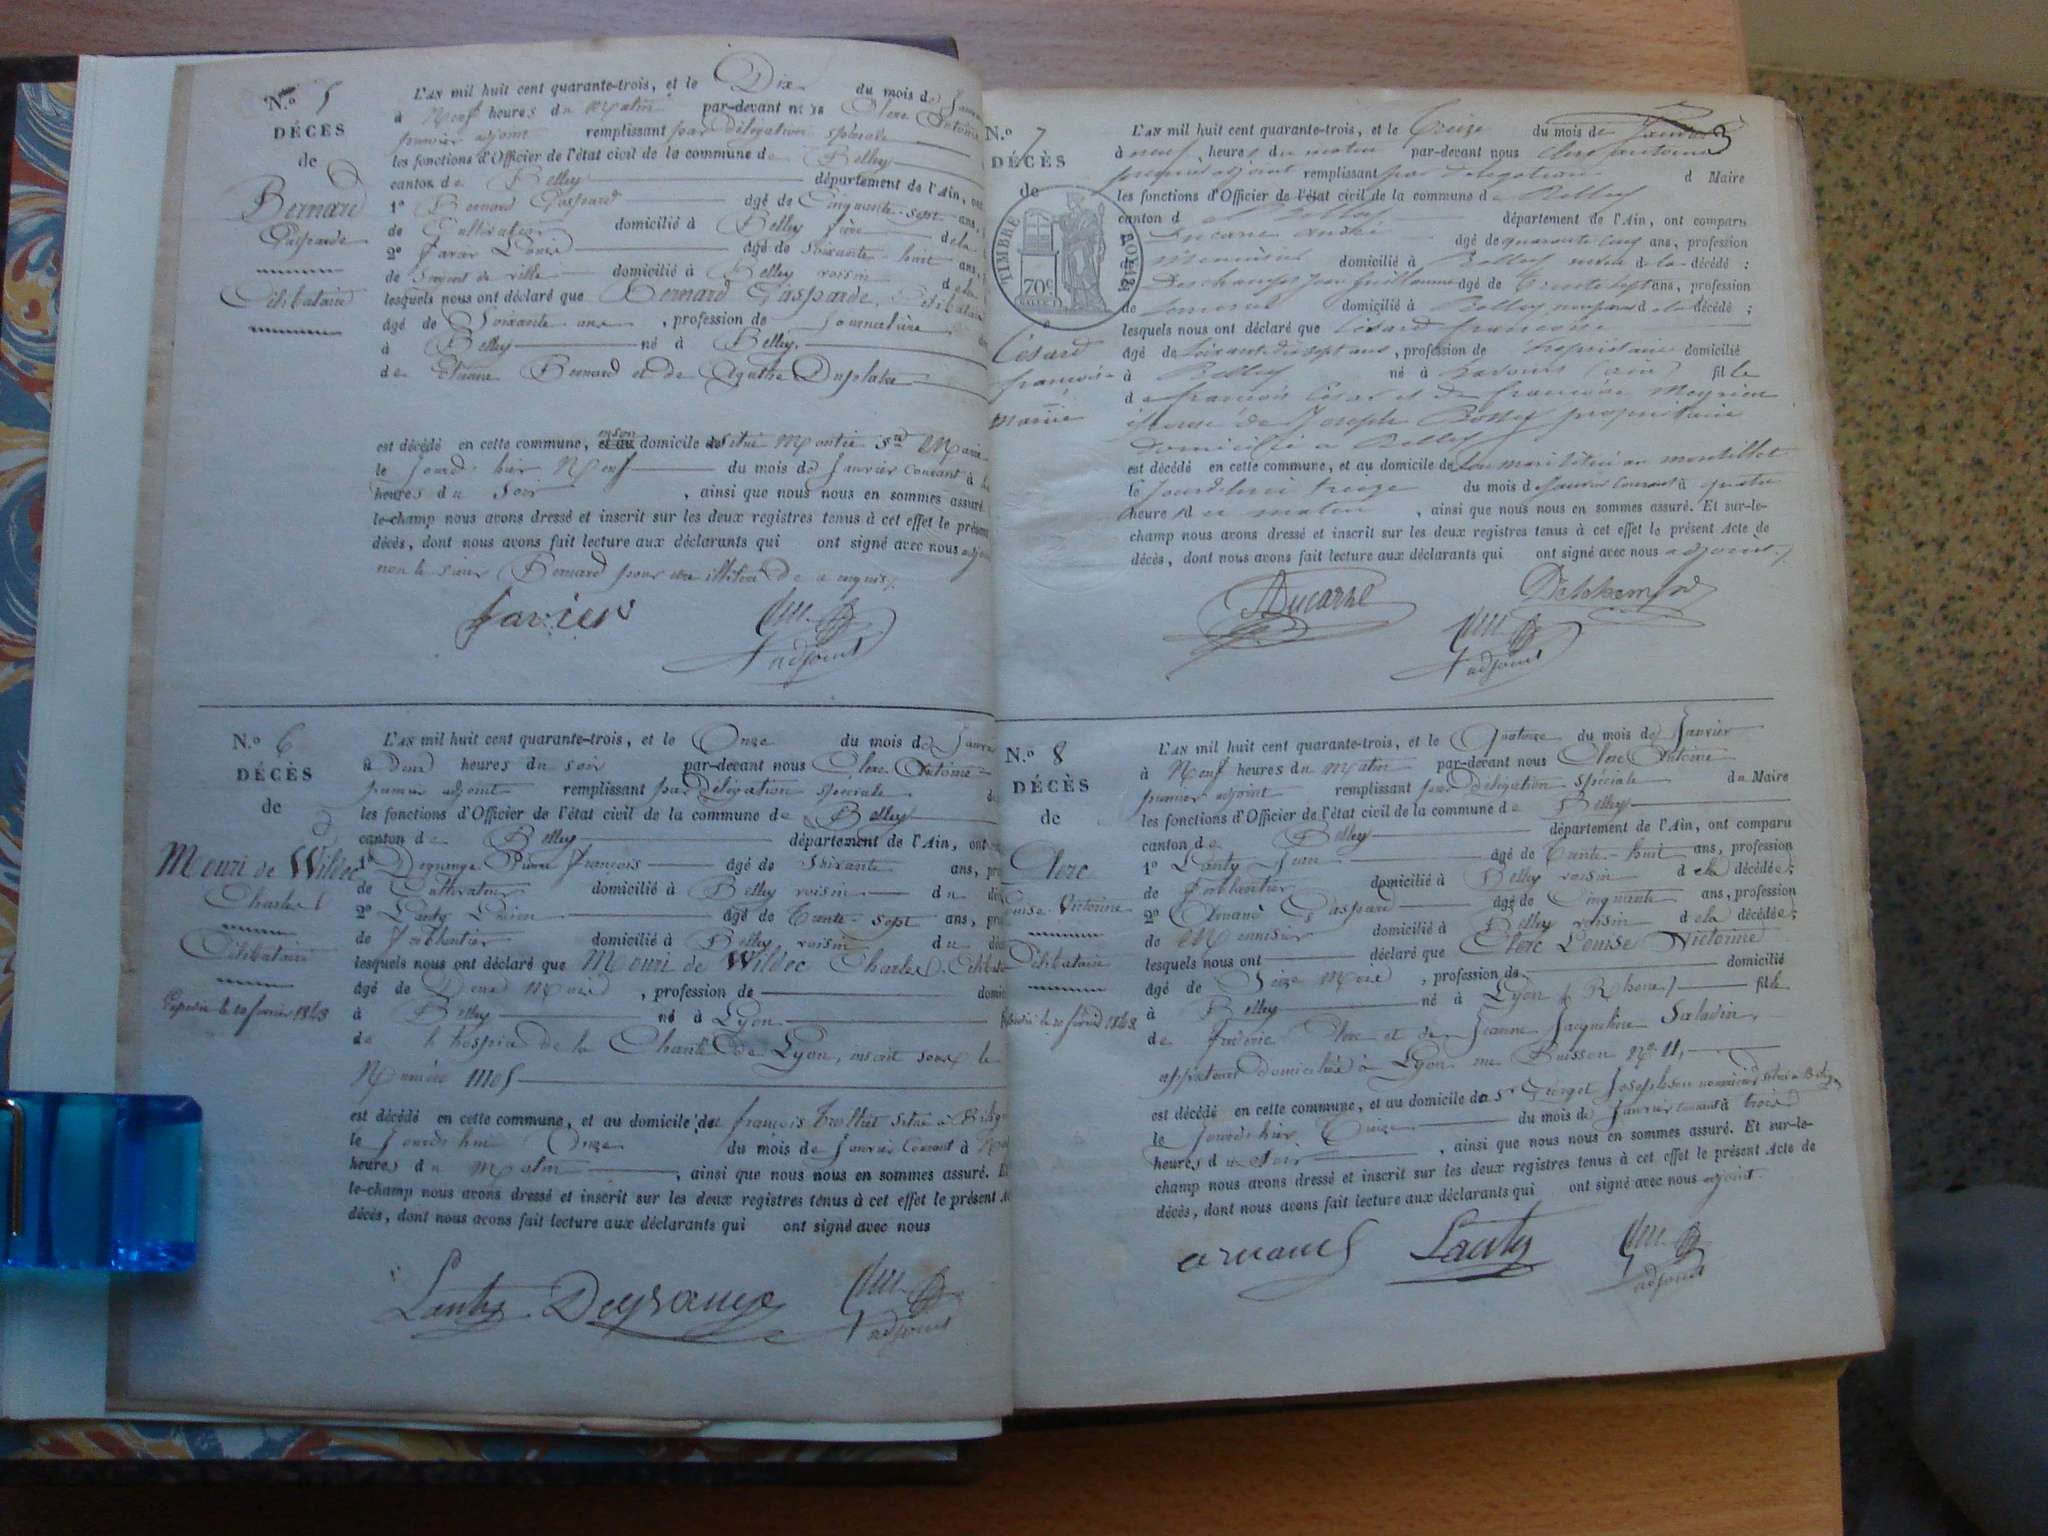 N.º 5
DÉCÈS
de
Bernard
Gasparde
Célibataire
L'AN mil huit cent quarante-trois, et le Dix du mois de
à Neuf heures du Matin par-devant nous Clerc Antoine
premier adjoint remplissant par délégation spéciale
les fonctions d'Officier de l'état civil de la commune de Belley
canton de Belley département de l'Ain, ont
1º Bernard Gaspard âgé de Cinquante-sept ans,
de Cultivateur domicilié à Belley frère de la
2º Favier Louis âgé de Soixante-huit ans,
de Sergent de ville domicilié à Belley voisin de la
lesquels nous ont déclaré que Bernard Gasparde, Célibataire
âgé de Soixante ans, profession de Journalière
à Belley né à Belley
de Bernard et de Agathe
est décédé en cette commune, en son domicile situé Montée
le Jourd'hier Neuf du mois de Janvier Courant à
heures du Soir, ainsi que nous nous en sommes assuré.
le-champ nous avons dressé et inscrit sur les deux registres tenus à cet effet le présent
décès, dont nous avons fait lecture aux déclarants qui ont signé avec nous adjoint
non le sieur Bernard pour être illitéré de ce requis.
favier
adjoint
N.º 6
DÉCÈS
de
Mouri de Wildec
Charles
Célibataire
Expédié le 10 février 1843
L'AN mil huit cent quarante-trois, et le Onze du mois de Janvier
à Deux heures du soir par-devant nous Clerc Antoine
premier adjoint remplissant par Délégation spéciale
les fonctions d'Officier de l'état civil de la commune de Belley
canton de Belley département de l'Ain, ont
1º Degrange Pierre François âgé de Soixante ans,
de Cultivateur domicilié à Belley voisin du
2º Lanty âgé de Trente-sept ans,
de Ferblantier domicilié à Belley voisin du
lesquels nous ont déclaré que Mouri de Wildec Charles, Célibataire
âgé de Deux Mois, profession de
à Belley né à Lyon
de l'hospice de la Charité de Lyon, inscrit sous le
Numéro 1105
est décédé en cette commune, et au domicile de françois situé à
le Jourd'hui Onze du mois de Janvier Courant à
heures du Matin, ainsi que nous nous en sommes assuré.
le-champ nous avons dressé et inscrit sur les deux registres tenus à cet effet le présent
décès, dont nous avons fait lecture aux déclarants qui ont signé avec nous
Lanty Degrange
adjoint
3
N.º 7
DÉCÈS
de
TIMBRE ROYAL
70c
Césard
françoise
mariée
L'AN mil huit cent quarante-trois, et le treize du mois de Janvier
à neuf heures du matin par-devant nous Clerc antoine
premier adjoint remplissant par délégation d Maire
les fonctions d'Officier de l'état civil de la commune de Belley
canton de Belley département de l'Ain, ont comparu
Ducarre André âgé de quarante cinq ans, profession
de Menuisier domicilié à Belley de la décédé ;
Deschamps Jean guillaume âgé de trente sept ans, profession
de domicilié à Belley de la décédé ;
lesquels nous ont déclaré que Césard françoise
âgé de soixante dix sept ans, profession de propriétaire domicilié
à Belley né à (ain) fille
de françois César et de françoise
épouse de Joseph propriétaire
domicilié à Belley
est décédé en cette commune, et au domicile de son mari situé au montillet
le Jourd'hui treize du mois de Janvier Courant à quatre
heures du matin, ainsi que nous nous en sommes assuré. Et sur-le-
champ nous avons dressé et inscrit sur les deux registres tenus à cet effet le présent Acte de
décès, dont nous avons fait lecture aux déclarants qui ont signé avec nous adjoint
Ducarre
adjoint
N.º 8
DÉCÈS
de
Clerc
Célibataire
le 10 février 1843
L'AN mil huit cent quarante-trois, et le Quatorze du mois de Janvier
à Neuf heures du Matin par-devant nous Clerc Antoine
premier adjoint remplissant par délégation spéciale du Maire
les fonctions d'Officier de l'état civil de la commune de Belley
canton de Belley département de l'Ain, ont comparu
1º Lanty Jean âgé de Trente-huit ans, profession
de Ferblantier domicilié à Belley voisin de la décédée ;
2º Gaspard âgé de Cinquante ans, profession
de Menuisier domicilié à Belley voisin de la décédée ;
lesquels nous ont déclaré que Clerc Louise Victorine
âgé de Seize Mois, profession de domicilié
à Belley né à Lyon (Rhône) fille
de Clerc et de Jeanne Jacqueline Saladin,
domiciliés à Lyon rue Buisson Nº 11,
est décédé en cette commune, et au domicile de Sr Joseph
le Jourd'hier Treize du mois de Janvier courant à trois
heures du Soir, ainsi que nous nous en sommes assuré. Et sur-le-
champ nous avons dressé et inscrit sur les deux registres tenus à cet effet le présent Acte de
décès, dont nous avons fait lecture aux déclarants qui ont signé avec nous adjoint.
Lanty
adjoint